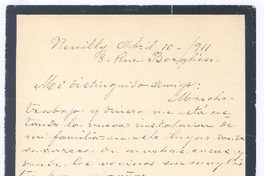 Neuilly Abril 10-/911
8. Rue Borghèse
Mi distinguido amigo:
Mucho
trabajo y dinero me está cos
tando la nueva instalacion de
mi familia en este lugar don
de carezco de muchas cosas y
donde los vecinos son